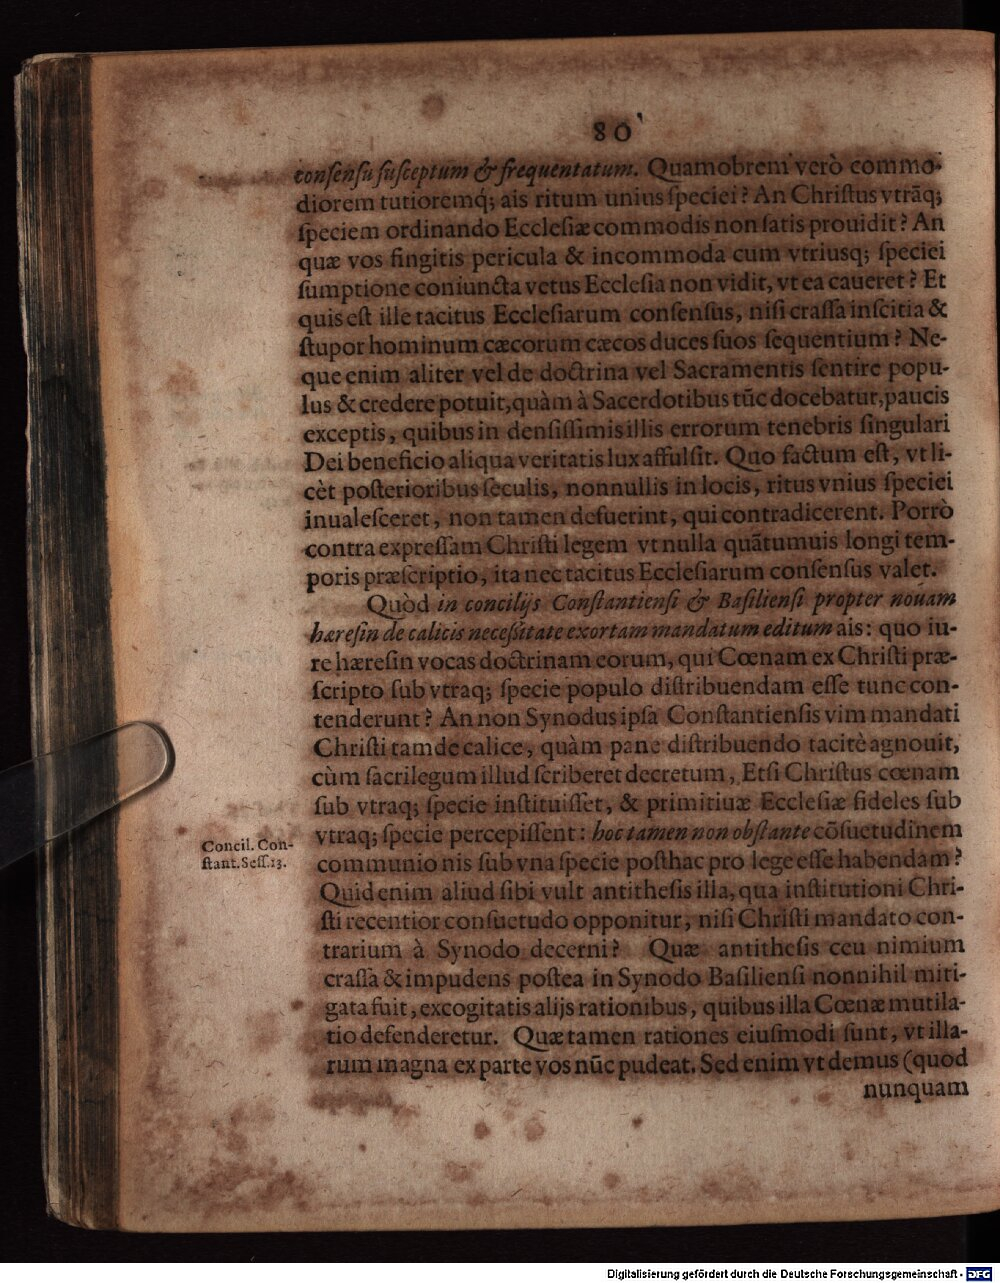 80
consensu susceptum & frequentatum. Quamobrem verò commo-
diorem tutioremq́; ais ritum unius speciei? An Christus vtrāq;
speciem ordinando Ecclesiæ commodis non satis prouidit? An
quæ vos fingitis pericula & incommoda cum vtriusq; speciei
sumptione coniuncta vetus Ecclesia non vidit, vt ea caueret? Et
quis est ille tacitus Ecclesiarum consensus, nisi crassa inscitia &
stupor hominum cæcorum cæcos duces suos sequentium? Ne-
que enim aliter vel de doctrina vel Sacramentis sentire popu-
lus & credere potuit, quàm à Sacerdotibus tūc docebatur, paucis
exceptis, quibus in densissimis illis errorum tenebris singulari
Dei beneficio aliqua veritatis lux affulsit. Quo factum est, vt li-
cèt posterioribus seculis, nonnullis in locis, ritus vnius speciei
inualesceret, non tamen defuerint, qui contradicerent. Porrò
contra expressam Christi legem vt nulla quātumuis longi tem-
poris præscriptio, ita nec tacitus Ecclesiarum consensus valet.
Quòd in concilijs Constantiensi & Basiliensi propter nouam
hæresin de calicis necessitate exortam mandatum editum ais: quo iu-
re hæresin vocas doctrinam eorum, qui Cœnam ex Christi præ-
scripto sub vtraq; specie populo distribuendam esse tunc con-
tenderunt? An non Synodus ipsa Constantiensis vim mandati
Christi tam de calice, quàm pane distribuendo tacitè agnouit,
cùm sacrilegum illud scriberet decretum, Etsi Christus cœnam
sub vtraq; specie instituisset, & primitiuæ Ecclesiæ fideles sub
vtraq; specie percepissent: hoc tamen non obstante cōsuetudinem
communionis sub vna specie posthac pro lege esse habendam?
Concil. Con-
stant. Sess. 13.
Quid enim aliud sibi vult antithesis illa, qua institutioni Chri-
sti recentior consuetudo opponitur, nisi Christi mandato con-
trarium à Synodo decerni? Quæ antithesis ceu nimium
crassa & impudens postea in Synodo Basiliensi nonnihil miti-
gata fuit, excogitatis alijs rationibus, quibus illa Cœnæ mutila-
tio defenderetur. Quæ tamen rationes eiusmodi sunt, vt illa-
rum magna ex parte vos nūc pudeat. Sed enim vt demus (quod
nunquam
Digitalisierung gefördert durch die Deutsche Forschungsgemeinschaft - DFG